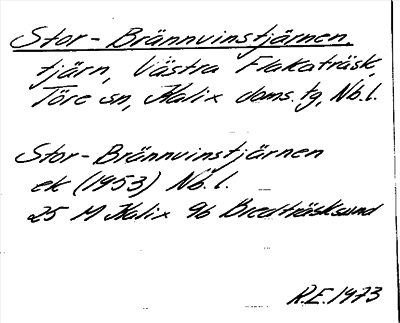 Stor-Brännvinstjärnen,
tjärn, Västra Flakaträsk,
Töre sn, Kalix doms.tg, Nb.l.
Stor-Brännvinstjärnen
ek (1953) Nb.l.
25 M Kalix 96 Bredträsksund
R.E. 1973